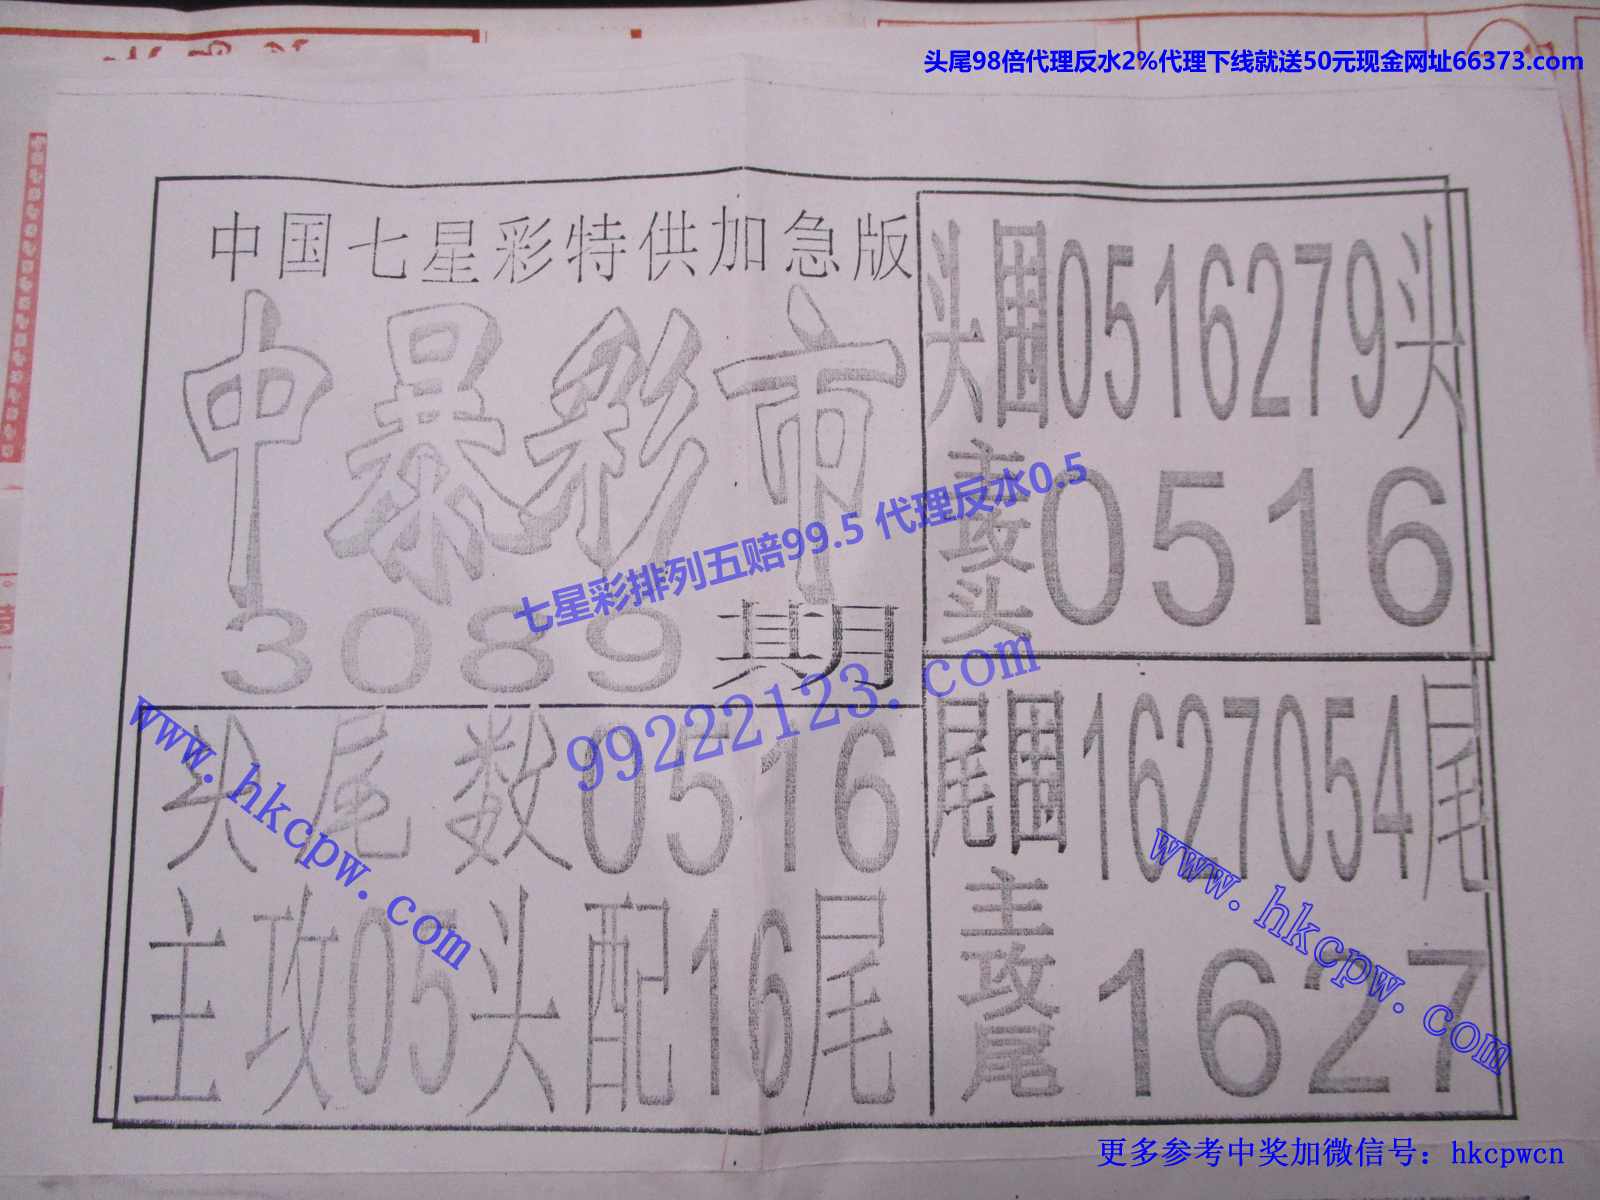 头尾98倍代理反水2%代理下线就送50元现金网址66373.com
中国七星彩特供加急版
中暴彩市
3089期
头围0516279头
主攻头0516
七星彩排列五赔99.5 代理反水0.5
99222123.com
头尾数0516
主攻05头配16尾
www.hkcpw.com
尾围1627054尾
主攻尾1627
www.hkcpw.com
更多参考中奖加微信号：hkcpwcn